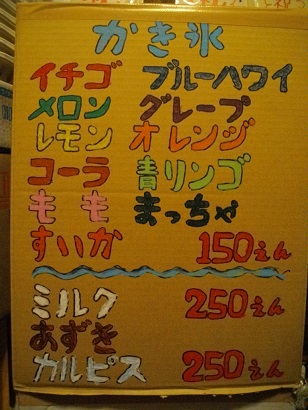 かき氷
イチゴ ブルーハワイ
メロン グレープ
レモン オレンジ
コーラ 青リンゴ
もも まっちゃ
すいか 150えん
ミルク 250えん
あずき
カルピス 250えん